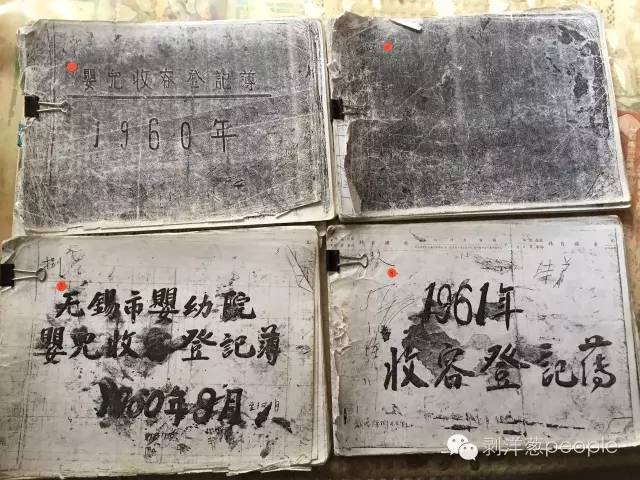 嬰兒收容登記簿
1960年
无锡市嬰幼院
嬰兒收容登記薄
1960年8月
1961年
收容登記薄
剥洋葱people